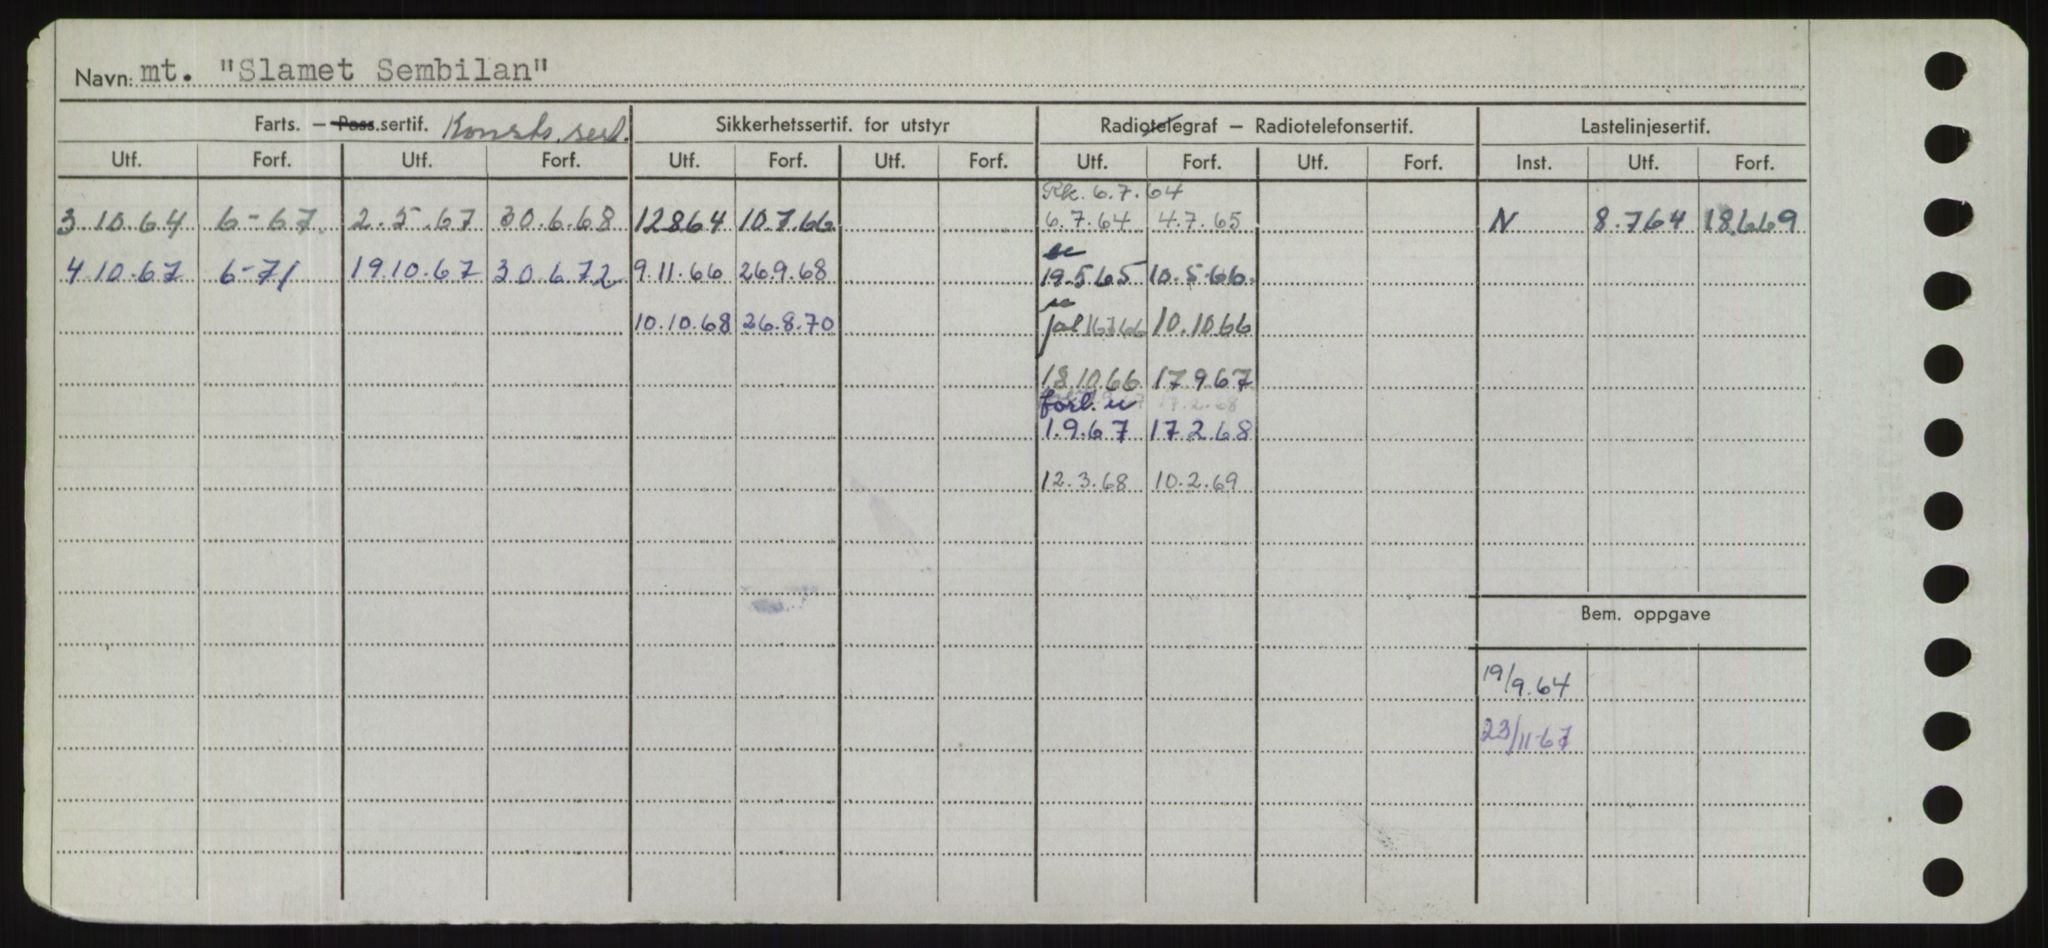 Navn: mt. "Slamet Sembilan"
Farts. – Pass.sertif. Konstr. sert. Sikkerhetssertif. for utstyr Radiotelegraf – Radiotelefonsertif. Lastelinjesertif.
Utf. Forf. Utf. Forf. Utf. Forf. Utf. Forf. Utf. Forf. Utf. Forf. Inst. Utf. Forf.
Rk. 6.7.64
3.10.64 6-67. 2.5.67 30.6.68 12864 10.7.66 6.7.64 4.7.65 N 8.764 18669
4.10.67 6-71 19.10.67 30.6.72 9.11.66 26.9.68 19.565 10.5.66.
10.10.68 26.8.70 10.1066
18.10.66 17.9.67
forl. 17.2.68
1.9.67 17.2.68
12.3.68 10.2.69
Bem. oppgave
19/9.64
23/11-67